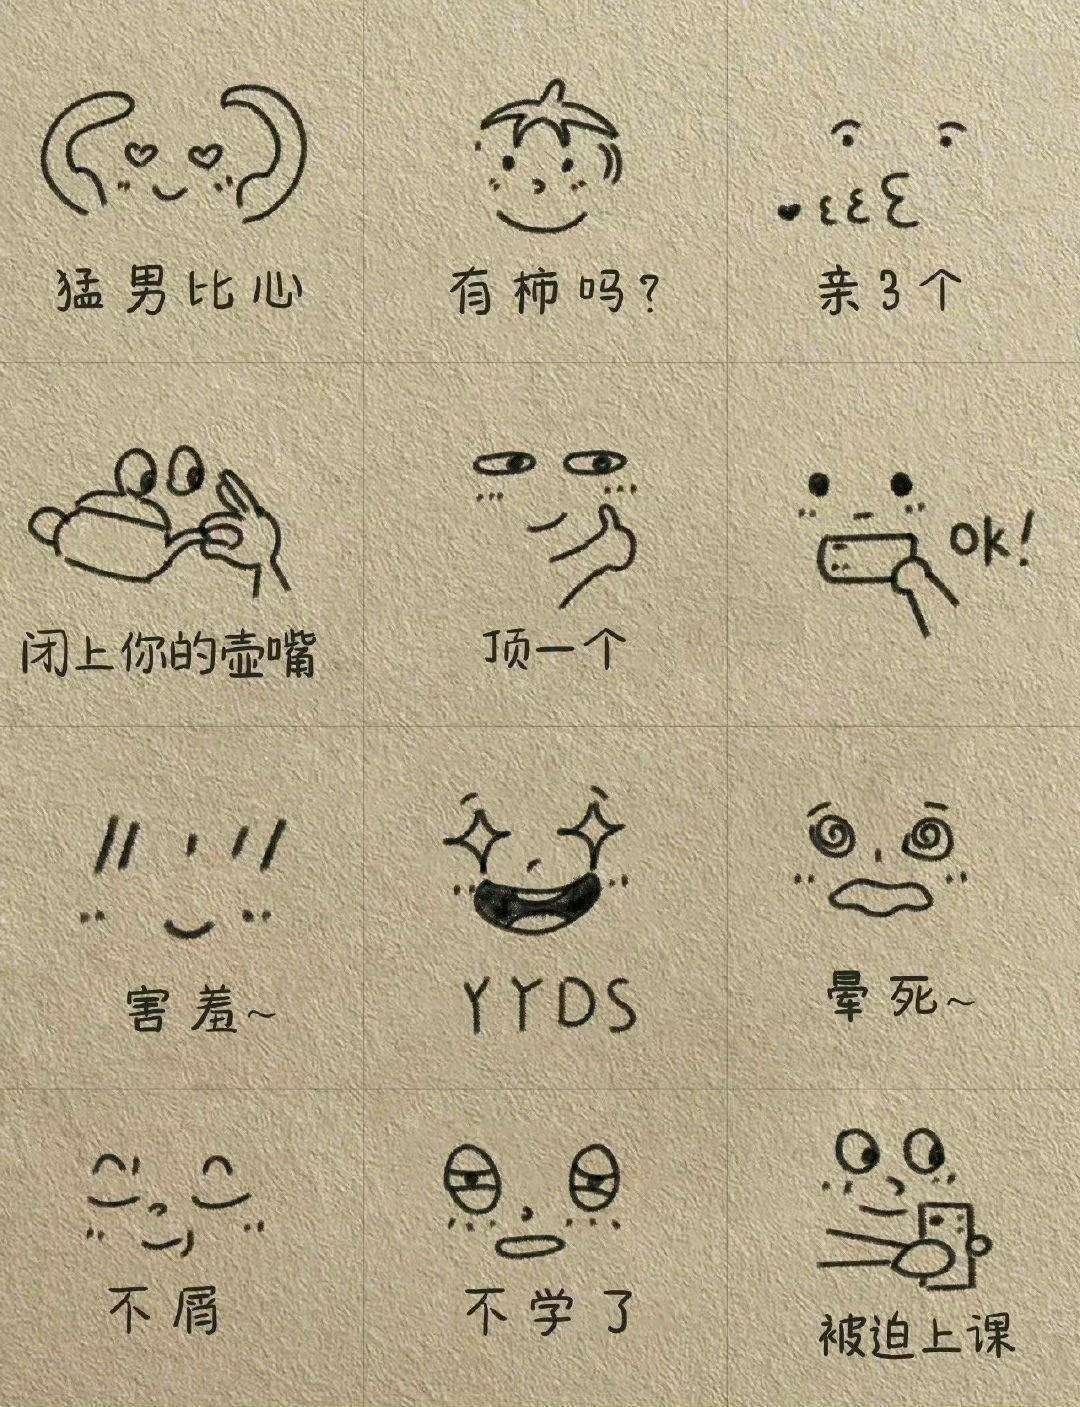 猛男比心
有柿吗?
亲3个
闭上你的壶嘴
顶一个
ok!
害羞~
YYDS
晕死~
不屑
不学了
被迫上课